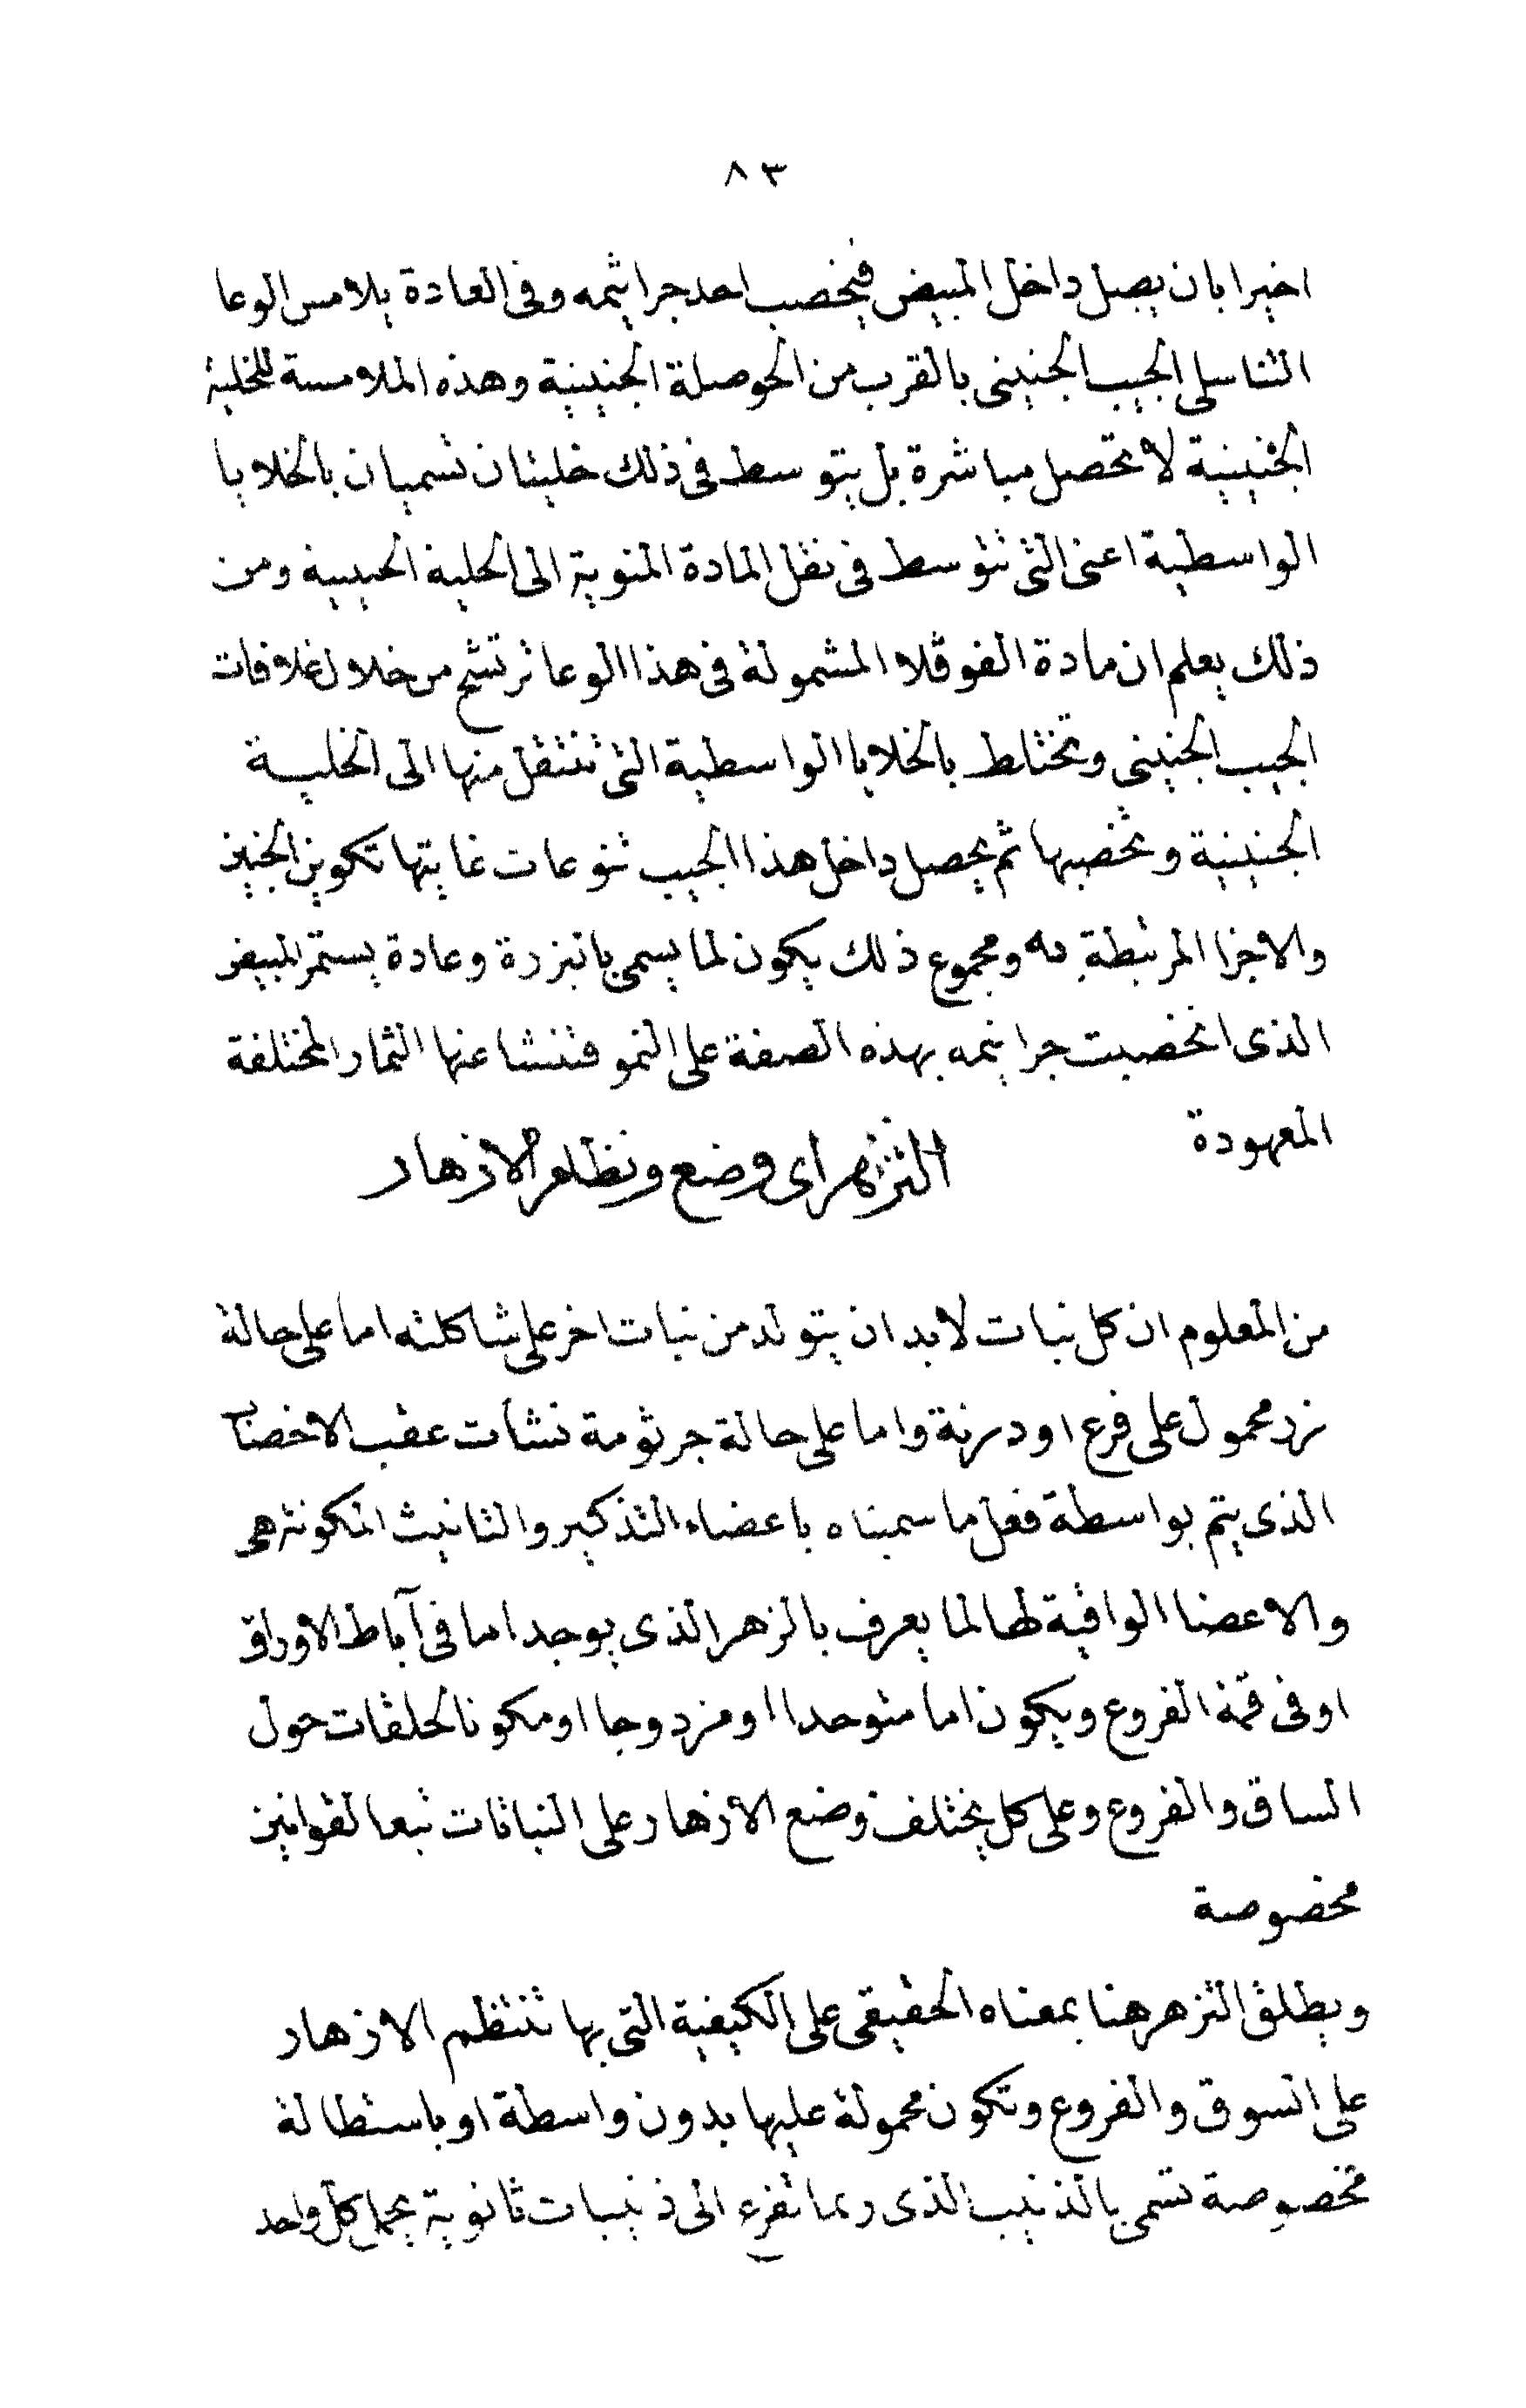 ٨٣
اخيرا بان يصل داخل المبيض فيخصب احد جراثيمه وفى العادة يلامس الوعا
التناسلى الجيب الجنينى بالقرب من الحوصلة الجنينية وهذه الملامسة للخلية
الجنينية لا تحصل مباشرة بل يتوسط فى ذلك خليتان تسميان بالخلايا
الواسطية اعنى التى تتوسط فى نقل المادة المنوية الى الخلية الجنينية ومن
ذلك يعلم ان مادة الفوڤلا المشمولة فى هذا الوعا ترتشح من خلال غلافات
الجيب الجنينى وتختلط بالخلايا الواسطية التى تنتقل منها الى الخلية
الجنينية وتخصبها ثم يحصل داخل هذا الجيب تنوعات غايتها تكوين الجنين
والاجزا المرتبطة به ومجموع ذلك يكون لما يسمى بالبزرة وعادة يستمر المبيض
الذى اخصبت جراثيمه بهذه الصفة على النمو فتنشا عنها الثمار المختلفة
المعهودة
التزهر اى وضع ونظام الازهار
من المعلوم ان كل نبات لابد ان يتولد من نبات اخر على شاكلته اما على حالة
زر محمول على فرع او درنة واما على حالة جرثومة نشأت عقب الاخصاب
الذى يتم بواسطة فعل ما سميناه باعضاء التذكير والتانيث المكونة هى
والاعضا الواقية لها لما يعرف بالزهر الذى يوجد اما فى آباط الاوراق
او فى قمة الفروع ويكون اما متوحدا او مزدوجا او مكونا لحلقات حول
الساق والفروع وعلى كل يختلف وضع الازهار على النباتات تبعا لقوانين
مخصوصة
ويطلق التزهر هنا بمعناه الحقيقى على الكيفية التى بها تنتظم الازهار
على السوق والفروع وتكون محمولة عليها بدون واسطة او باستطالة
مخصوصة تسمى بالذنيب الذى ربما تفرع الى ذنيبات ثانوية يحمل كل واحد